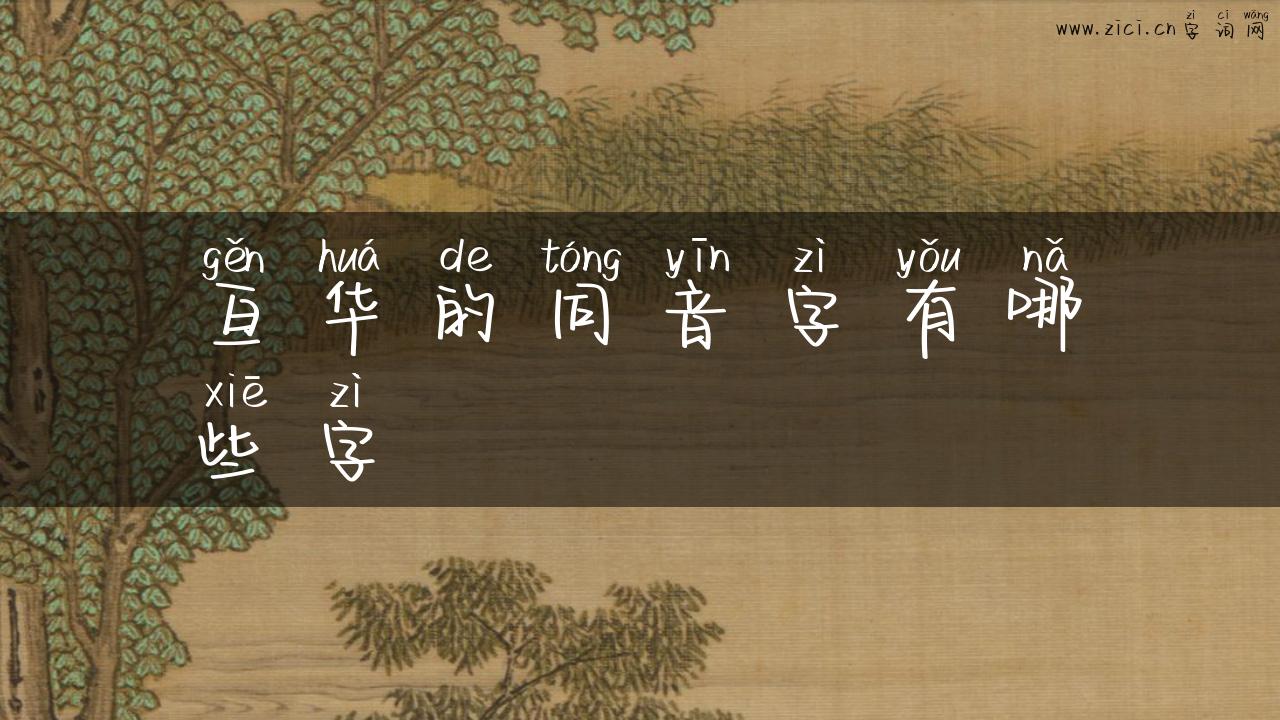 zì cí wǎng
www.zici.cn 字词网
gěn huá de tóng yīn zì yǒu nǎ
亘华的同音字有哪
xiē zì
些字